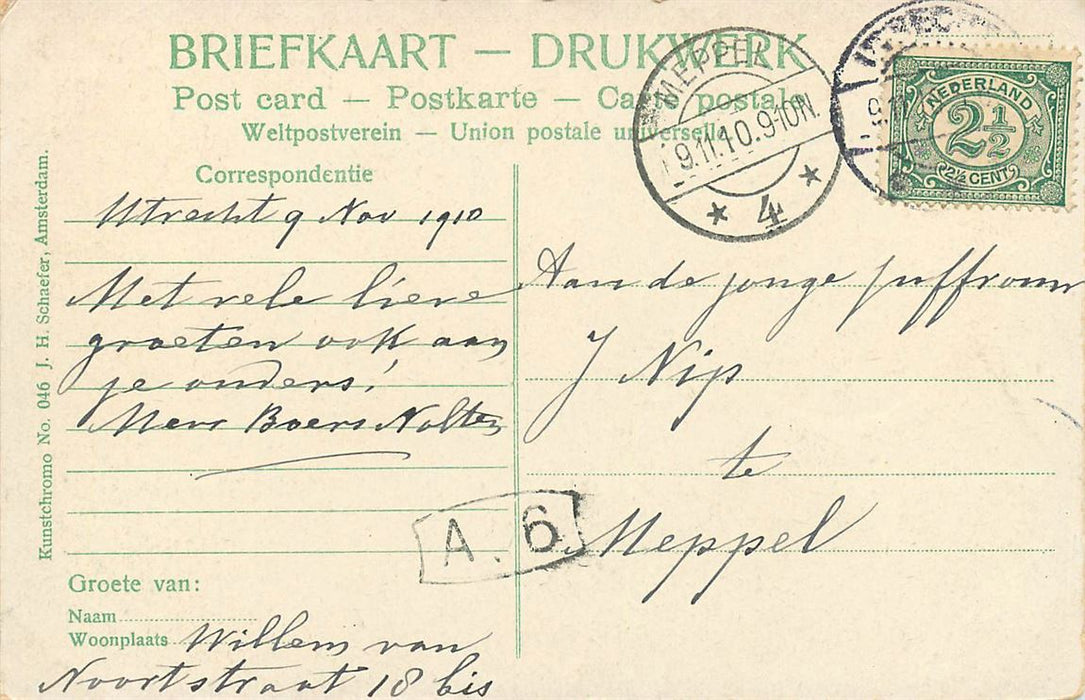 BRIEFKAART — DRUKWERK
Post card — Postkarte — Carte postale
Weltpostverein — Union postale universelle
MEPPEL
9.11.10.9-10N.
4
UTRECHT
NEDERLAND
2½
2½ CENT
Correspondentie
Utrecht 9 Nov 1910
Met vele lieve
groeten ook aan
je ouders!
Mevr Boers Nolten
Aan de jonge juffrouw
J Nip
te
Meppel
A. 6
Groete van:
Naam
Woonplaats Willem van
Noortstraat 18 bis
Kunstchromo No. 046 J. H. Schaefer, Amsterdam.